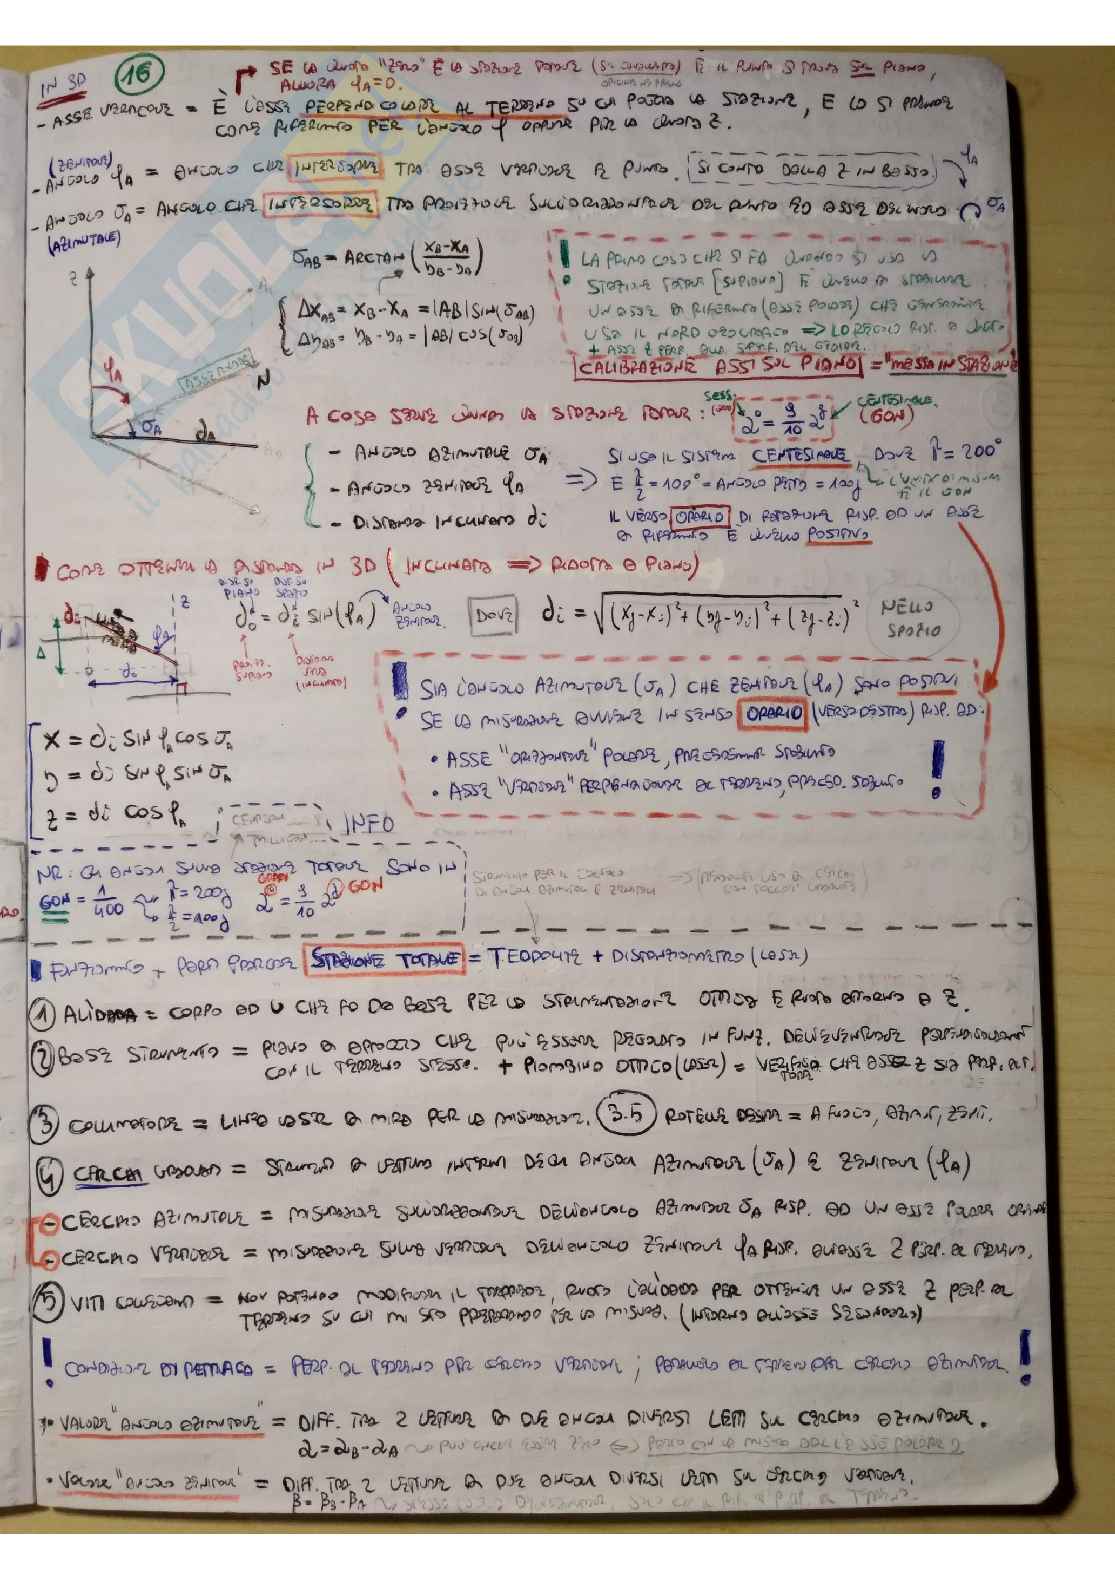 IN 3D
16
SE LA QUOTA "ZERO" È LA STAZIONE TOTALE E IL PUNTO SI TROVA SUL PIANO,
ALLORA φA=0.
- ASSE VERTICALE = È L'ASSE PERPENDICOLARE AL TERRENO SU CUI POGGIA LA STAZIONE, E LO SI PRENDE
COME RIFERIMENTO PER L'ANGOLO φ OPPURE PER LA QUOTA Z.
(ZENITALE)
- ANGOLO φA = ANGOLO CHE INTERCORRE TRA ASSE VERTICALE E PUNTO. SI CONTA DALLA Z IN BASSO φA
- ANGOLO σA = ANGOLO CHE INTERCORRE TRA PROIEZIONE SULL'ORIZZONTALE DEL PUNTO ED ASSE DEL σA
(AZIMUTALE)
σAB = ARCTAN (xB-xA / yB-yA)
ΔxAB = xB-xA = |AB| SIN(σAB)
ΔyAB = yB-yA = |AB| COS(σAB)
! LA PRIMA COSA CHE SI FA QUANDO SI USA LA
STAZIONE TOTALE [SUL PIANO] È QUELLO DI STABILIRE
UN ASSE DI RIFERIMENTO (ASSE POLARE) CHE GENERALMENTE
USA IL NORD GEOGRAFICO => LO REGOLO RISP. A QUESTO
+ ASSE Z PERP. ALLA SUPERF. DEL GEOIDE.
CALIBRAZIONE ASSI SUL PIANO = "MESSA IN STAZIONE"
Z
φA
N
σA
dA
A COSA SERVE QUINDI LA STAZIONE TOTALE:
SESS. α° = 9/10 αg CENTESIMALE (GON)
- ANGOLO AZIMUTALE σA
- ANGOLO ZENITALE φA
- DISTANZA INCLINATA di
=> SI USA IL SISTEMA CENTESIMALE, DOVE π = 200°
E π/2 = 100° = ANGOLO RETTO = 100g L'UNITÀ DI MISURA È IL GON
IL VERSO ORARIO DI ROTAZIONE RISP. AD UN ASSE
DI RIFERIMENTO È QUELLO POSITIVO
COME OTTENERE LA DISTANZA IN 3D (INCLINATA => RIDOTTA A PIANO)
di
Z
φA
Δ
0
do
do = di SIN(φA) ANGOLO ZENITALE
DOVE
di = √(xj-xi)²+(yj-yi)²+(zj-zi)²
NELLO SPAZIO
! SIA L'ANGOLO AZIMUTALE (σA) CHE ZENITALE (φA) SONO POSITIVI
SE LA MISURAZIONE AVVIENE IN SENSO ORARIO (VERSO DESTRA) RISP. AD:
• ASSE "ORIZZONTALE" POLARE, PRECEDENTEM. STABILITO
• ASSE "VERTICALE" PERPENDICOLARE AL TERRENO, PRECED. STABILITO !
X = di SIN φA COS σA
y = di SIN φA SIN σA
z = di COS φA
INFO
NB: GLI ANGOLI SULLA STAZIONE TOTALE SONO IN
GON = 1/400 π = 200g π/2 = 100g
α° = 9/10 αg GON
FUNZIONAM. + PARTI PRINCIPALI STAZIONE TOTALE = TEODOLITE + DISTANZIOMETRO (LASER)
1 ALIDADA = CORPO AD U CHE FA DA BASE PER LA STRUMENTAZIONE OTTICA E RUOTA ATTORNO A Z.
2 BASE STRUMENTO = PIANO DI APPOGGIO CHE PUÒ ESSERE REGOLATO IN FUNZ. DELL'EVENTUALE PERPENDICOLARITÀ
CON IL TERRENO STESSO. + PIOMBINO OTTICO (LASER) = VERIFICA CHE ASSE Z SIA PERP. AL T.
3 COLLIMATORE = LINEA LASER DI MIRA PER LA MISURAZIONE. 3.5 ROTELLE DESTRA = A FUOCO, AZIMUT, ZENIT.
4 CERCHI GRADUATI = STRUMENTI DI LETTURA INTERNI DEGLI ANGOLI AZIMUTALE (σA) E ZENITALE (φA)
- CERCHIO AZIMUTALE = MISURAZIONE SULL'ORIZZONTALE DELL'ANGOLO AZIMUTALE σA RISP. AD UN ASSE POLARE
- CERCHIO VERTICALE = MISURAZIONE SULLA VERTICALE DELL'ANGOLO ZENITALE φA RISP. ALL'ASSE Z PERP. AL TERRENO.
5 VITI CALANTI = NON POTENDO MODIFICARE IL TERRENO, RUOTO L'ALIDADA PER OTTENERE UN ASSE Z PERP. AL
TERRENO SU CUI MI STO PREPARANDO PER LA MISURA. (INTORNO ALL'ASSE SECONDARIO)
! CONDIZIONE DI RETTIFICA = PERP. AL TERRENO PER CERCHIO VERTICALE ; PARALLELO AL TERRENO PER CERCHIO AZIMUTALE. !
• VALORE "ANGOLO AZIMUTALE" = DIFF. TRA 2 LETTURE DI DUE ANGOLI DIVERSI LETTI SUL CERCHIO AZIMUTALE.
α = αB-αA
• VALORE "ANGOLO ZENITALE" = DIFF. TRA 2 LETTURE DI DUE ANGOLI DIVERSI LETTI SUL CERCHIO VERTICALE.
β = βB-βA